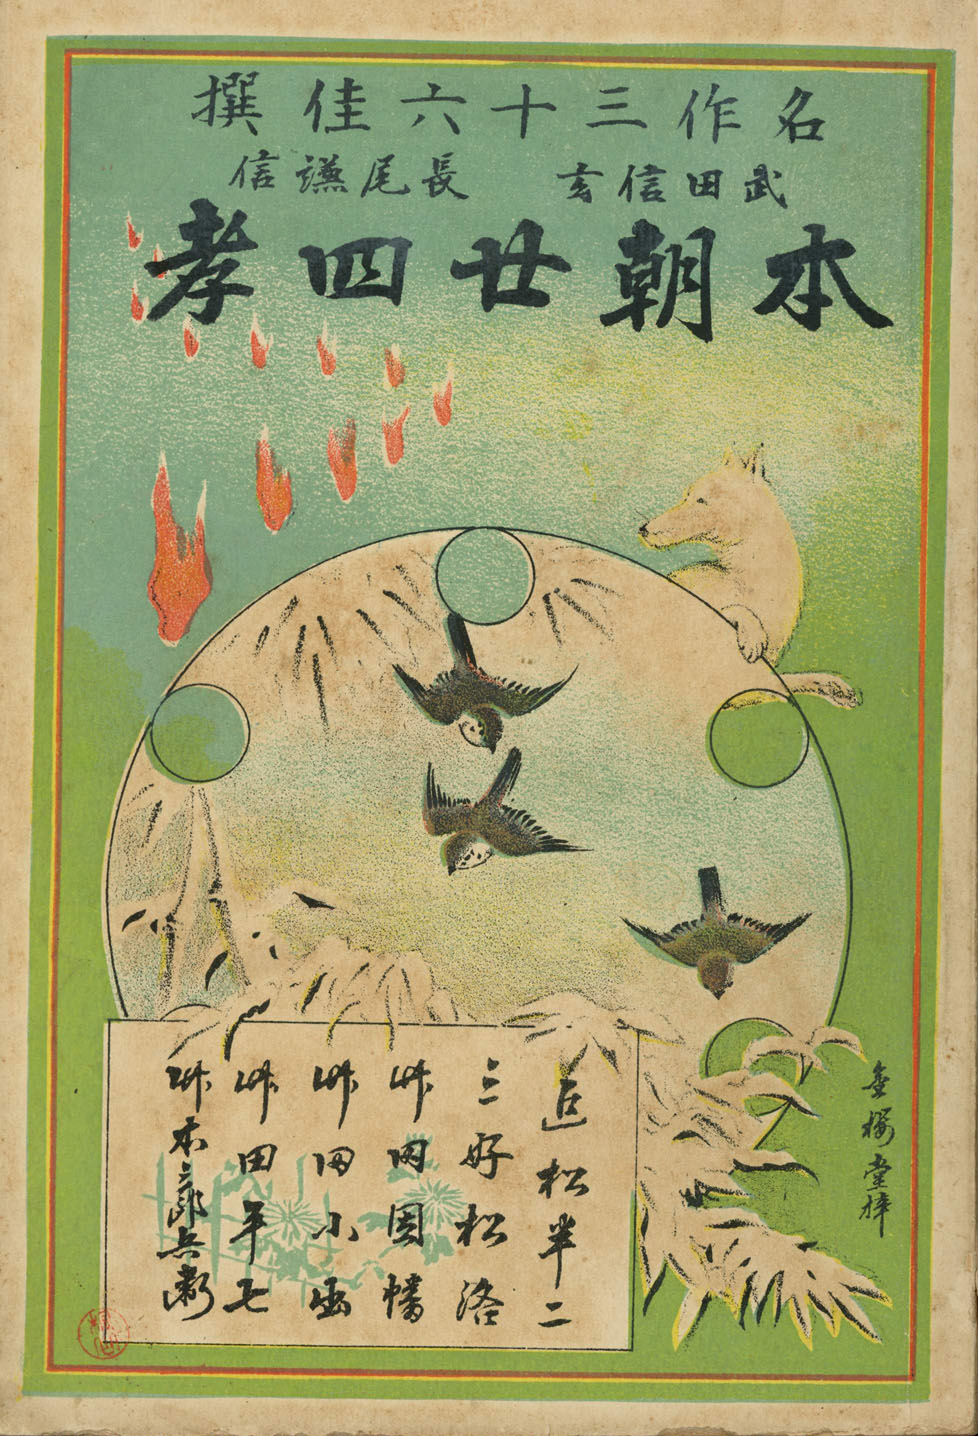 名作三十六佳撰
武田信玄 長尾謙信
本朝廿四孝
近松半二
三好松洛
竹田因幡
竹田小出
竹田平七
竹本三郎兵衛
金櫻堂梓